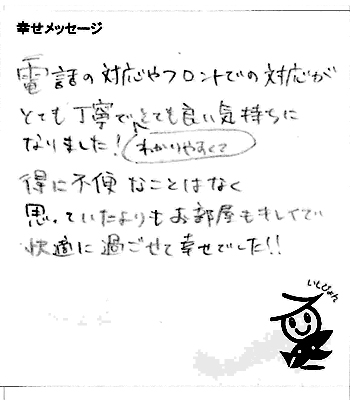 幸せメッセージ
電話の対応やフロントでの対応が
とても丁寧でとても良い気持ちに
なりました！わかりやすくて
得に不便なことはなく
思っていたよりもお部屋もキレイで
快適に過ごせて幸せでした!!
いしじょん